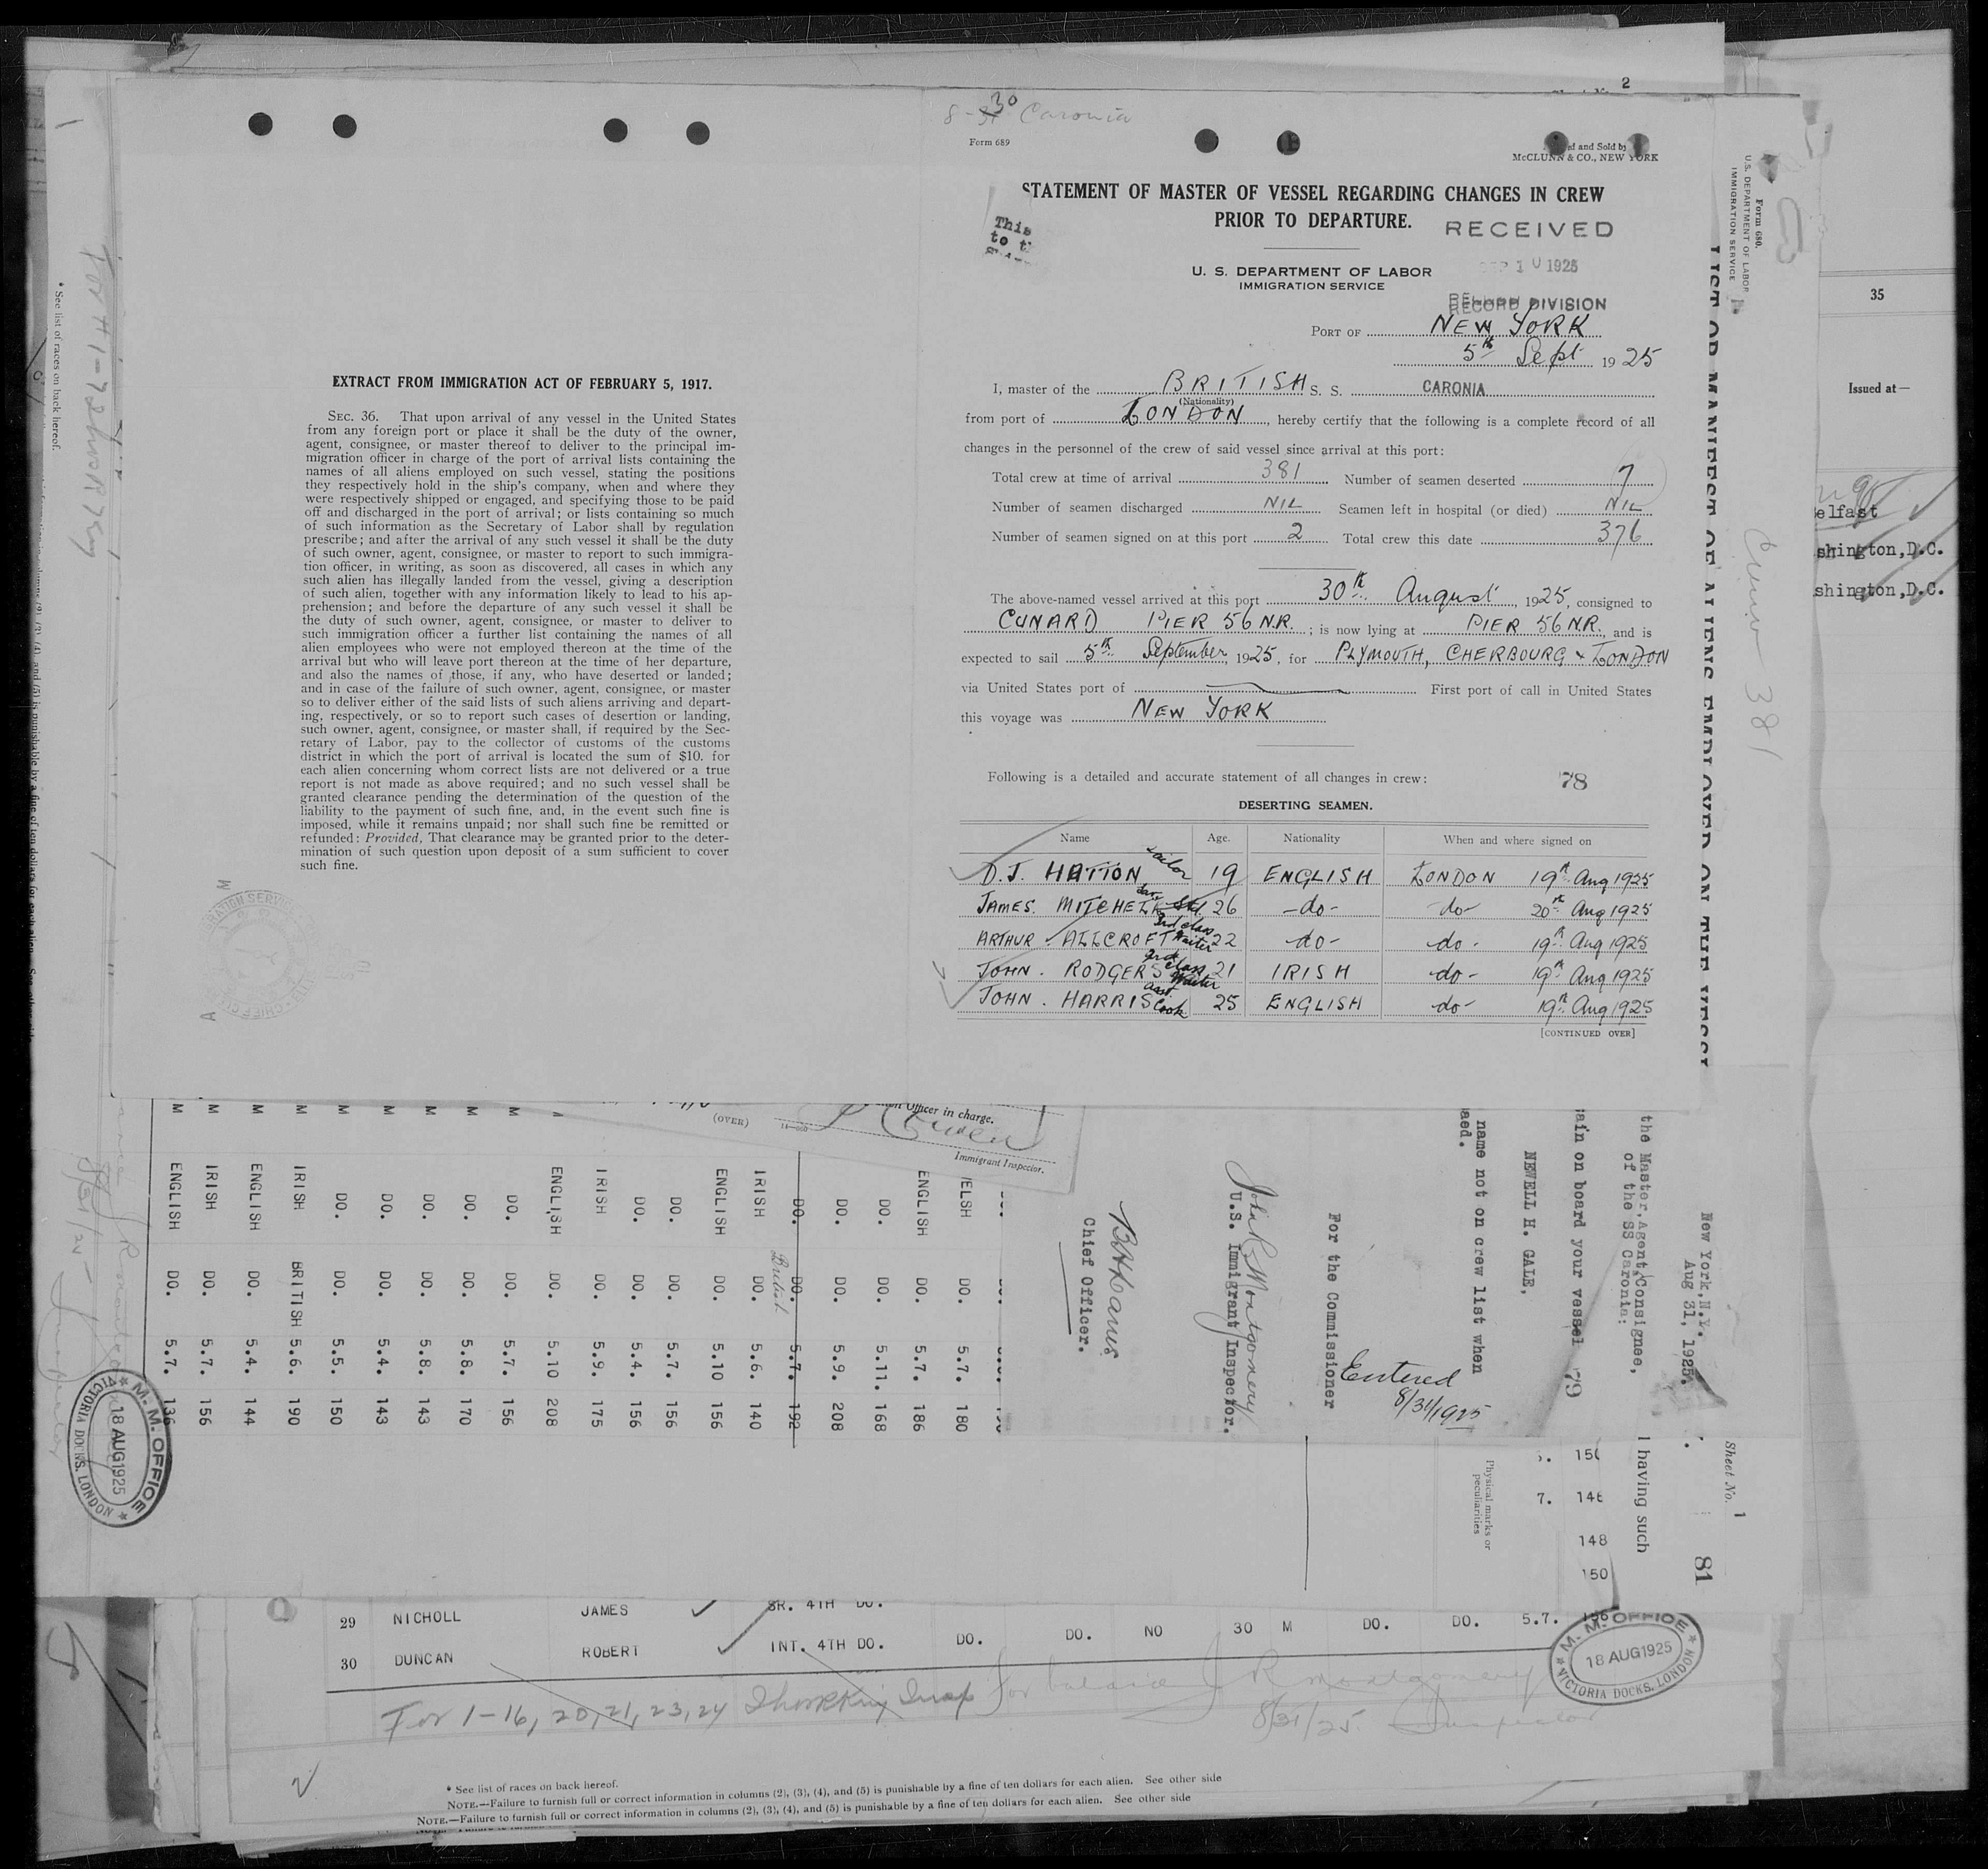 8-30 Caronia
Form 689
McCLUNN & CO., NEW YORK
STATEMENT OF MASTER OF VESSEL REGARDING CHANGES IN CREW
PRIOR TO DEPARTURE.
RECEIVED
1925
RECORD DIVISION
This
to
U. S. DEPARTMENT OF LABOR
IMMIGRATION SERVICE
PORT OF NEW YORK
5th Sept 1925
I, master of the BRITISH S. S. CARONIA
(Nationality)
from port of LONDON, hereby certify that the following is a complete record of all
changes in the personnel of the crew of said vessel since arrival at this port:
Total crew at time of arrival 381 Number of seamen deserted 7
Number of seamen discharged NIL Seamen left in hospital (or died) NIL
Number of seamen signed on at this port 2 Total crew this date 376
The above-named vessel arrived at this port 30th August, 1925, consigned to
CUNARD PIER 56 N.R.; is now lying at PIER 56 N.R., and is
expected to sail 5th September, 1925, for PLYMOUTH, CHERBOURG & LONDON
via United States port of First port of call in United States
this voyage was NEW YORK
Following is a detailed and accurate statement of all changes in crew:
78
DESERTING SEAMEN.
Name Age. Nationality When and where signed on
D.J. HATTON sailor 19 ENGLISH LONDON 19th Aug 1925
JAMES. MITCHELL 26 -do- -do- 20th Aug 1925
ARTHUR ALLCROFT 3rd class Waiter 22 -do- -do- 19th Aug 1925
JOHN. RODGERS 3rd class Waiter 21 IRISH -do- 19th Aug 1925
JOHN. HARRIS asst Cook 25 ENGLISH -do- 19th Aug 1925
[CONTINUED OVER]
EXTRACT FROM IMMIGRATION ACT OF FEBRUARY 5, 1917.
SEC. 36. That upon arrival of any vessel in the United States
from any foreign port or place it shall be the duty of the owner,
agent, consignee, or master thereof to deliver to the principal im-
migration officer in charge of the port of arrival lists containing the
names of all aliens employed on such vessel, stating the positions
they respectively hold in the ship's company, when and where they
were respectively shipped or engaged, and specifying those to be paid
off and discharged in the port of arrival; or lists containing so much
of such information as the Secretary of Labor shall by regulation
prescribe; and after the arrival of any such vessel it shall be the duty
of such owner, agent, consignee, or master to report to such immigra-
tion officer, in writing, as soon as discovered, all cases in which any
such alien has illegally landed from the vessel, giving a description
of such alien, together with any information likely to lead to his ap-
prehension; and before the departure of any such vessel it shall be
the duty of such owner, agent, consignee, or master to deliver to
such immigration officer a further list containing the names of all
alien employees who were not employed thereon at the time of the
arrival but who will leave port thereon at the time of her departure,
and also the names of those, if any, who have deserted or landed;
and in case of the failure of such owner, agent, consignee, or master
so to deliver either of the said lists of such aliens arriving and depart-
ing, respectively, or so to report such cases of desertion or landing,
such owner, agent, consignee, or master shall, if required by the Sec-
retary of Labor, pay to the collector of customs of the customs
district in which the port of arrival is located the sum of $10. for
each alien concerning whom correct lists are not delivered or a true
report is not made as above required; and no such vessel shall be
granted clearance pending the determination of the question of the
liability to the payment of such fine, and, in the event such fine is
imposed, while it remains unpaid; nor shall such fine be remitted or
refunded: Provided, That clearance may be granted prior to the deter-
mination of such question upon deposit of a sum sufficient to cover
such fine.
* See list of races on back hereof.
2
Form 680.
U.S. DEPARTMENT OF LABOR
IMMIGRATION SERVICE
LIST OR MANIFEST OF ALIENS EMPLOYED ON THE VESSEL
Crew 381
35
Issued at—
elfast
shington,D.C.
shington,D.C.
(OVER)
Officer in charge.
Immigrant Inspector.
New York,N.Y.
Aug 31, 1925.
the Master,Agent,Consignee,
of the SS Caronia:
ain on board your vessel 79
NEWELL H. GALE,
name not on crew list when
For the Commissioner
Entered
8/31/1925
John R Montgomery
U.S. Immigrant Inspector.
Chief Officer.
Sheet No. 1
81
I having such
Physical marks or
peculiarities
148
150
M DO. 5.7. 180
M ENGLISH DO. 5.7. 186
DO. DO. 5.11. 168
DO. DO. 5.9. 208
DO. DO. British 5.7. 192
IRISH DO. 5.6. 140
ENGLISH DO. 5.10 156
DO. DO. 5.7. 156
DO. DO. 5.4. 156
IRISH DO. 5.9. 175
ENGLISH DO. 5.10 208
M DO. DO. 5.7. 156
M DO. DO. 5.8. 170
M DO. DO. 5.8. 143
M DO. DO. 5.4. 143
M DO. DO. 5.5. 150
M IRISH BRITISH 5.6. 190
M ENGLISH DO. 5.4. 144
M IRISH DO. 5.7. 156
M ENGLISH DO. 5.7. 136
M. M. OFFICE
18 AUG 1925
VICTORIA DOCKS, LONDON
29 NICHOLL JAMES SR. 4TH DO. 5.7. 156
30 DUNCAN ROBERT INT. 4TH DO. DO. DO. NO 30 M DO. DO.
M. M. OFFICE
18 AUG 1925
VICTORIA DOCKS, LONDON
For 1-16, 20, 21, 23, 24 for balance J R Montgomery
8/31/25. Inspector
* See list of races on back hereof.
NOTE.—Failure to furnish full or correct information in columns (2), (3), (4), and (5) is punishable by a fine of ten dollars for each alien. See other side
NOTE.—Failure to furnish full or correct information in columns (2), (3), (4), and (5) is punishable by a fine of ten dollars for each alien. See other side